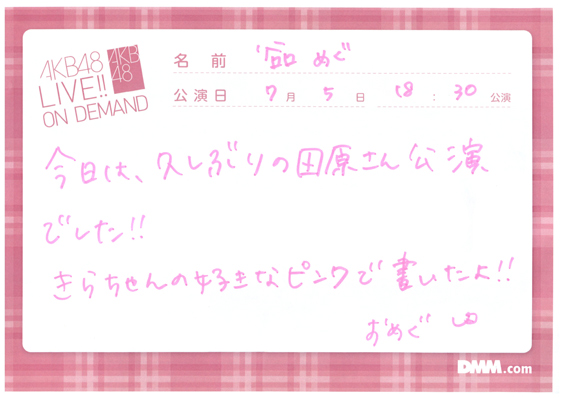 AKB48
LIVE!!
ON DEMAND
AKB
48
名前 谷口 めぐ
公演日 7月5日 18:30公演
今日は、久しぶりの田原さん公演
でした!!
きらちゃんの好きなピンクで書いたよ!!
おめぐ
DMM.com